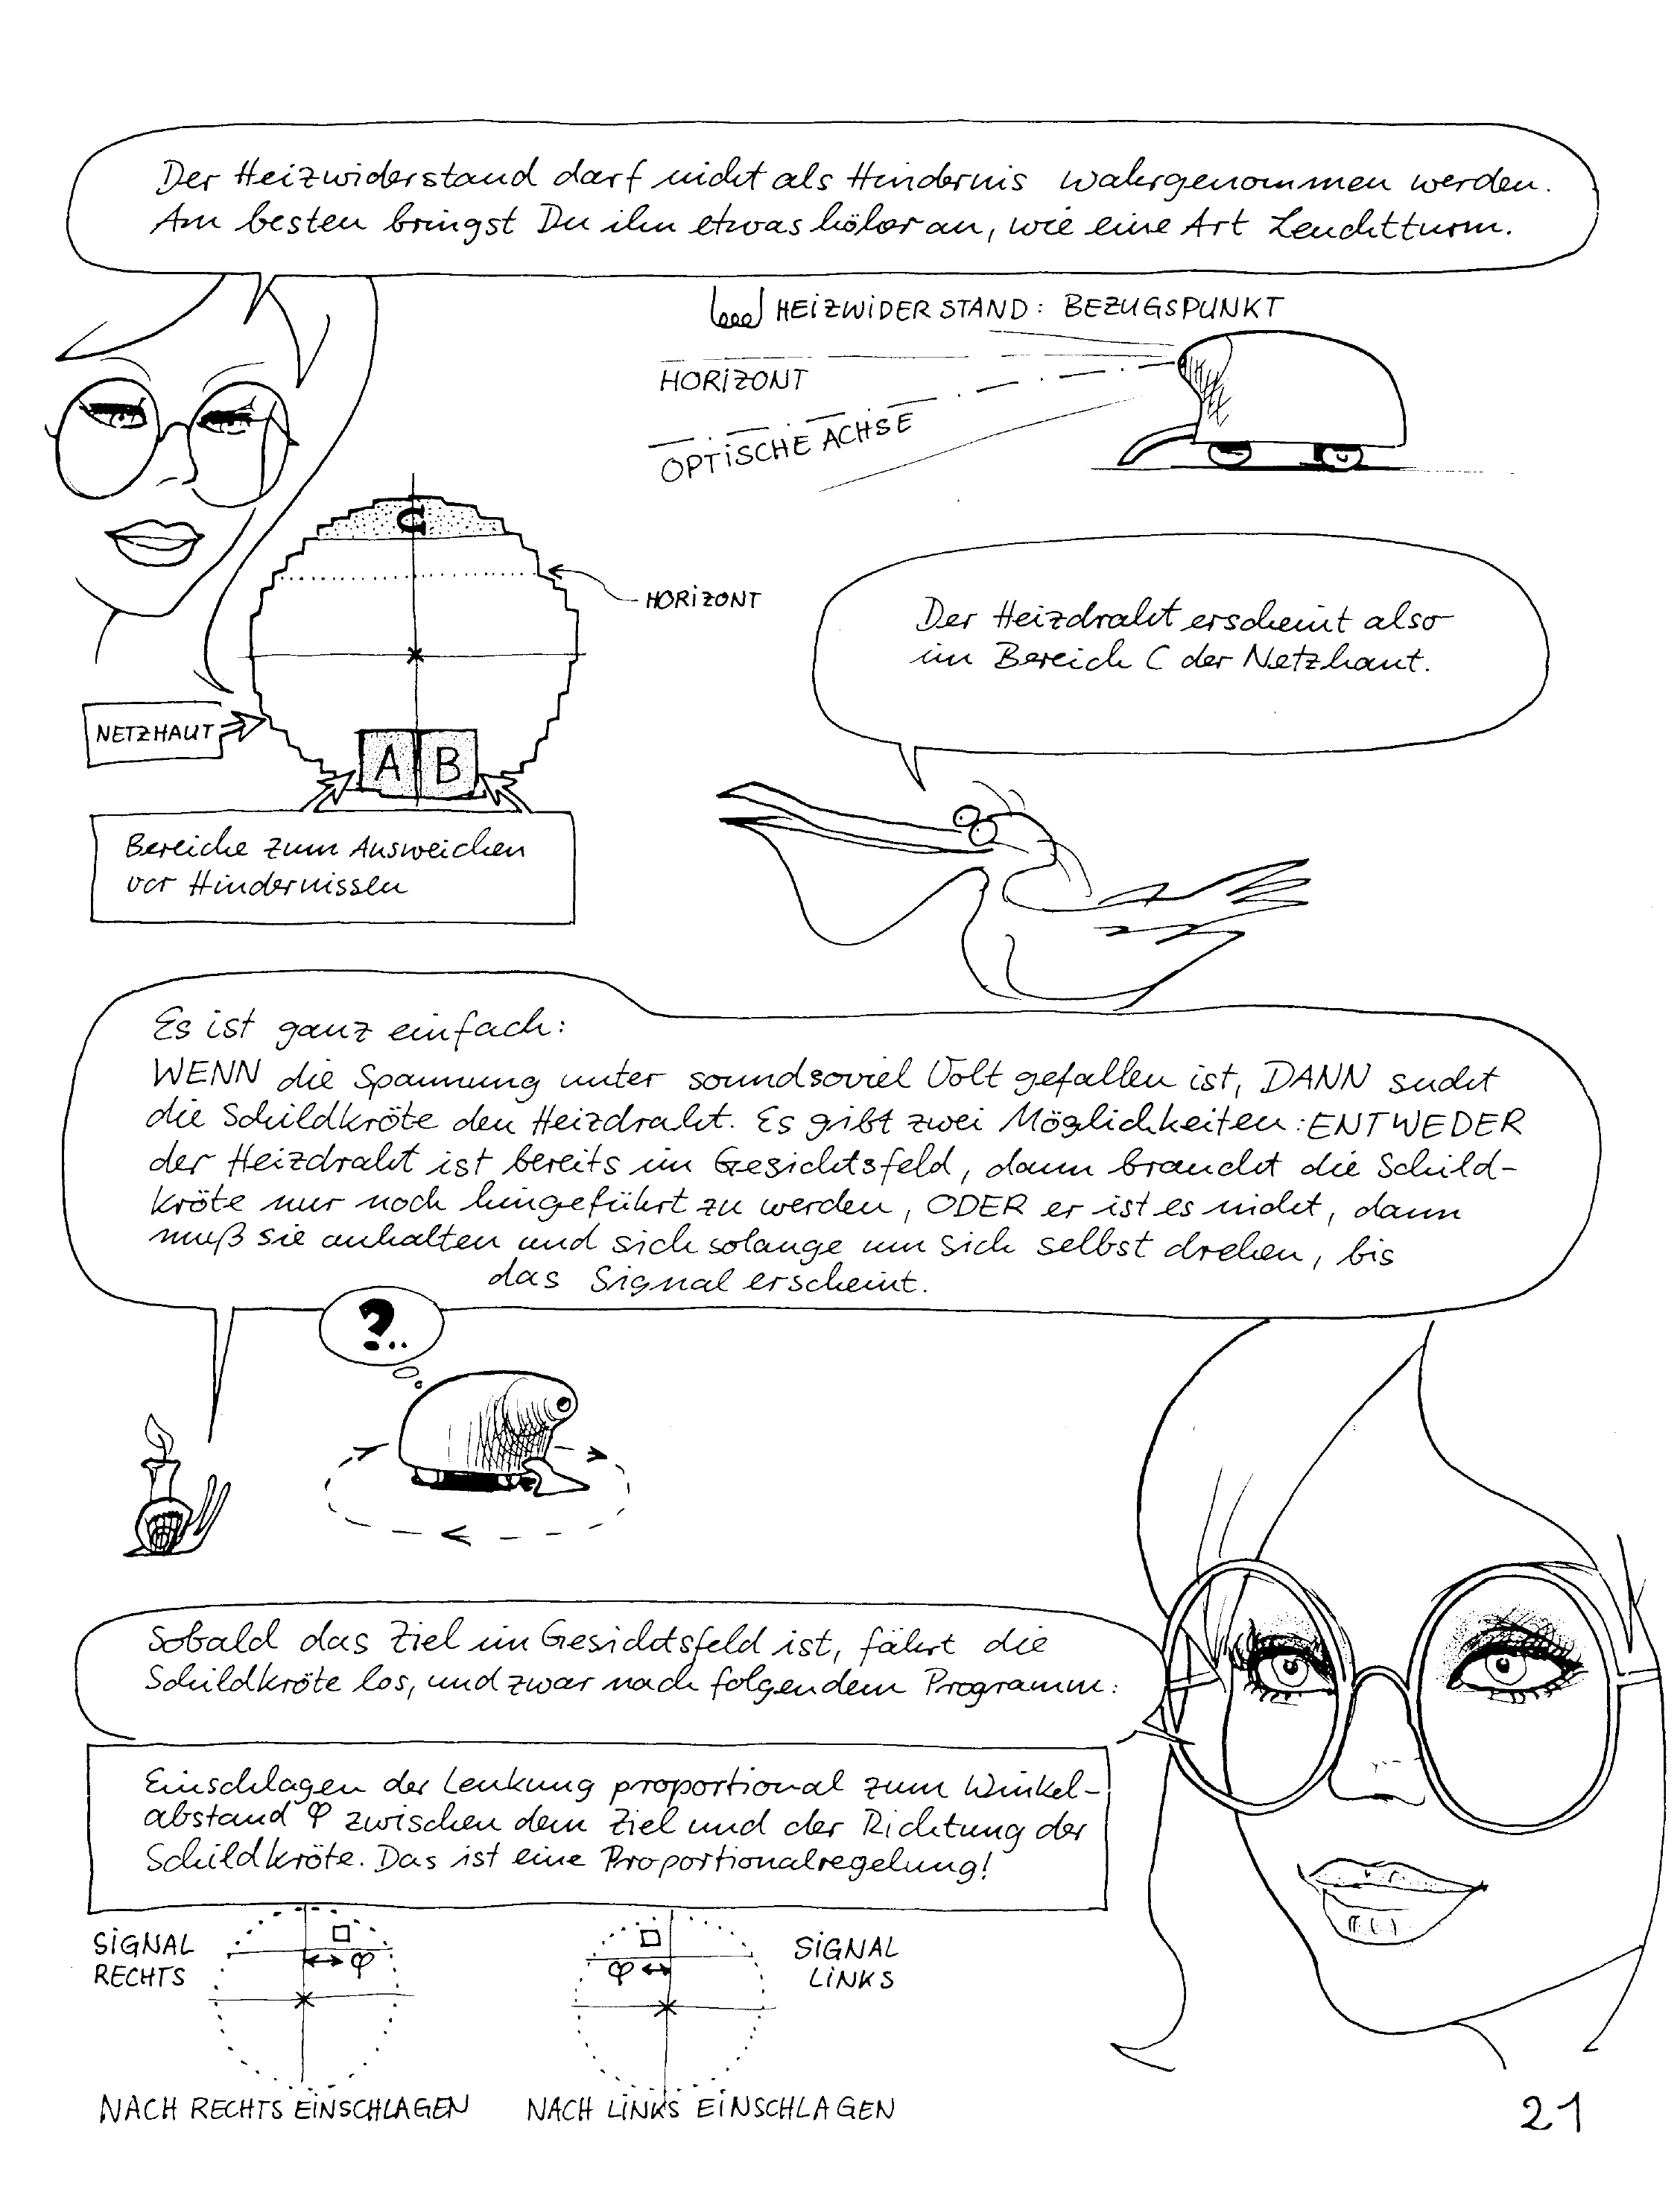 Der Heizwiderstand darf nicht als Hindernis wahrgenommen werden.
Am besten bringst Du ihn etwas höher an, wie eine Art Leuchtturm.
HEIZWIDERSTAND: BEZUGSPUNKT
HORIZONT
OPTISCHE ACHSE
C
HORIZONT
Der Heizdraht erscheint also
im Bereich C der Netzhaut.
NETZHAUT
A B
Bereiche zum Ausweichen
vor Hindernissen
Es ist ganz einfach:
WENN die Spannung unter soundsoviel Volt gefallen ist, DANN sucht
die Schildkröte den Heizdraht. Es gibt zwei Möglichkeiten: ENTWEDER
der Heizdraht ist bereits im Gesichtsfeld, dann braucht die Schild-
kröte nur noch hingeführt zu werden, ODER er ist es nicht, dann
muß sie anhalten und sich solange um sich selbst drehen, bis
das Signal erscheint.
?..
Sobald das Ziel im Gesichtsfeld ist, fährt die
Schildkröte los, und zwar nach folgendem Programm:
Einschlagen der Lenkung proportional zum Winkel-
abstand φ zwischen dem Ziel und der Richtung der
Schildkröte. Das ist eine Proportionalregelung!
SIGNAL
RECHTS
φ
φ
SIGNAL
LINKS
NACH RECHTS EINSCHLAGEN
NACH LINKS EINSCHLAGEN
21